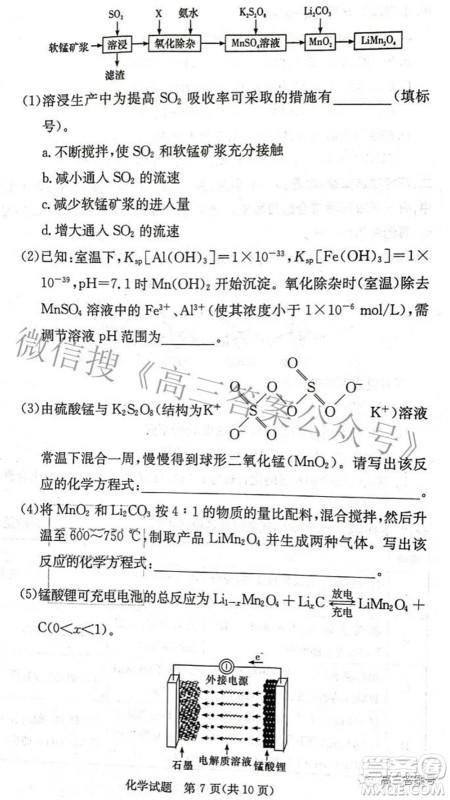 SO₂ X 氨水 K₂S₂O₈ Li₂CO₃
软锰矿浆 溶浸 氧化除杂 MnSO₄溶液 MnO₂ LiMn₂O₄
滤渣
(1)溶浸生产中为提高 SO₂ 吸收率可采取的措施有________(填标
号)。
a.不断搅拌,使 SO₂ 和软锰矿浆充分接触
b.减小通入 SO₂ 的流速
c.减少软锰矿浆的进入量
d.增大通入 SO₂ 的流速
(2)已知:室温下,Ksp[Al(OH)₃]=1×10⁻³³,Ksp[Fe(OH)₃]=1×
10⁻³⁹,pH=7.1 时 Mn(OH)₂ 开始沉淀。氧化除杂时(室温)除去
MnSO₄ 溶液中的 Fe³⁺、Al³⁺(使其浓度小于 1×10⁻⁶ mol/L),需
调节溶液 pH 范围为________。
O O O⁻
S O S
O⁻ O
O O O
(3)由硫酸锰与 K₂S₂O₈(结构为K⁺ K⁺)溶液
常温下混合一周,慢慢得到球形二氧化锰(MnO₂)。请写出该反
应的化学方程式:________________。
(4)将 MnO₂ 和 Li₂CO₃ 按 4∶1 的物质的量比配料,混合搅拌,然后升
温至 600~750 ℃,制取产品 LiMn₂O₄ 并生成两种气体。写出该
反应的化学方程式:________________。
(5)锰酸锂可充电电池的总反应为 Li₁₋ₓMn₂O₄+LiₓC 放电⇌充电 LiMn₂O₄+
C(0<x<1)。
e⁻
外接电源
石墨 电解质溶液 锰酸锂
化学试题 第 7 页(共 10 页)
微信搜《高三答案公众号》